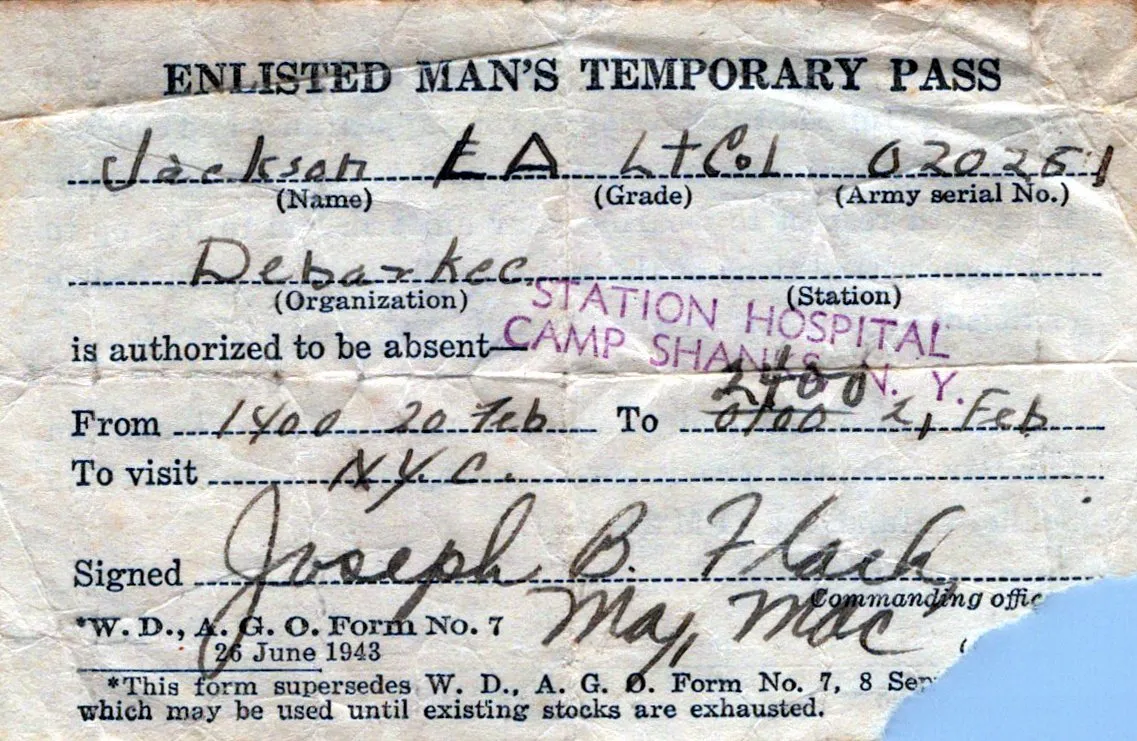 ENLISTED MAN'S TEMPORARY PASS
Jackson EA Lt Col 020261
(Name) (Grade) (Army serial No.)
Debarkee
(Organization) (Station)
STATION HOSPITAL
is authorized to be absent—
CAMP SHANKS N. Y.
2400
From 1400 20 Feb To 0100 21 Feb
To visit N.Y.C.
Signed Joseph B. Flack
Commanding offic
*W. D., A. G. O. Form No. 7 Maj, MAC
26 June 1943
*This form supersedes W. D., A. G. O. Form No. 7, 8 Sep
which may be used until existing stocks are exhausted.